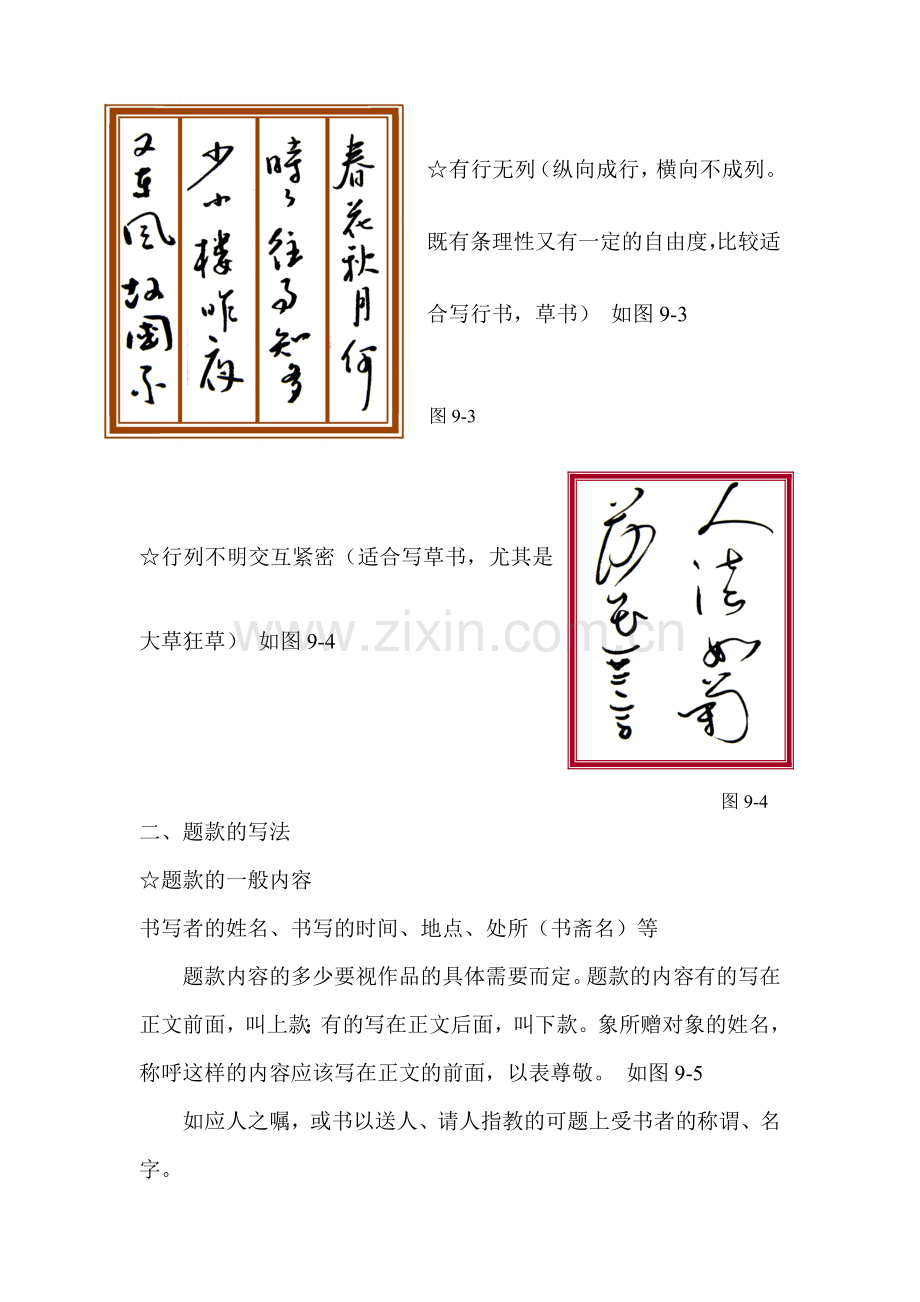 春花秋月何
時々往事知多
少小楼昨夜
又東风故国不
☆有行无列（纵向成行，横向不成列。
既有条理性又有一定的自由度，比较适
合写行书，草书） 如图 9-3
图 9-3
☆行列不明交互紧密（适合写草书，尤其是
大草狂草） 如图 9-4
人淡如菊
www.zixin.com.cn
图 9-4
二、题款的写法
☆题款的一般内容
书写者的姓名、书写的时间、地点、处所（书斋名）等
题款内容的多少要视作品的具体需要而定。题款的内容有的写在
正文前面，叫上款；有的写在正文后面，叫下款。象所赠对象的姓名，
称呼这样的内容应该写在正文的前面，以表尊敬。 如图 9-5
如应人之嘱，或书以送人、请人指教的可题上受书者的称谓、名
字。